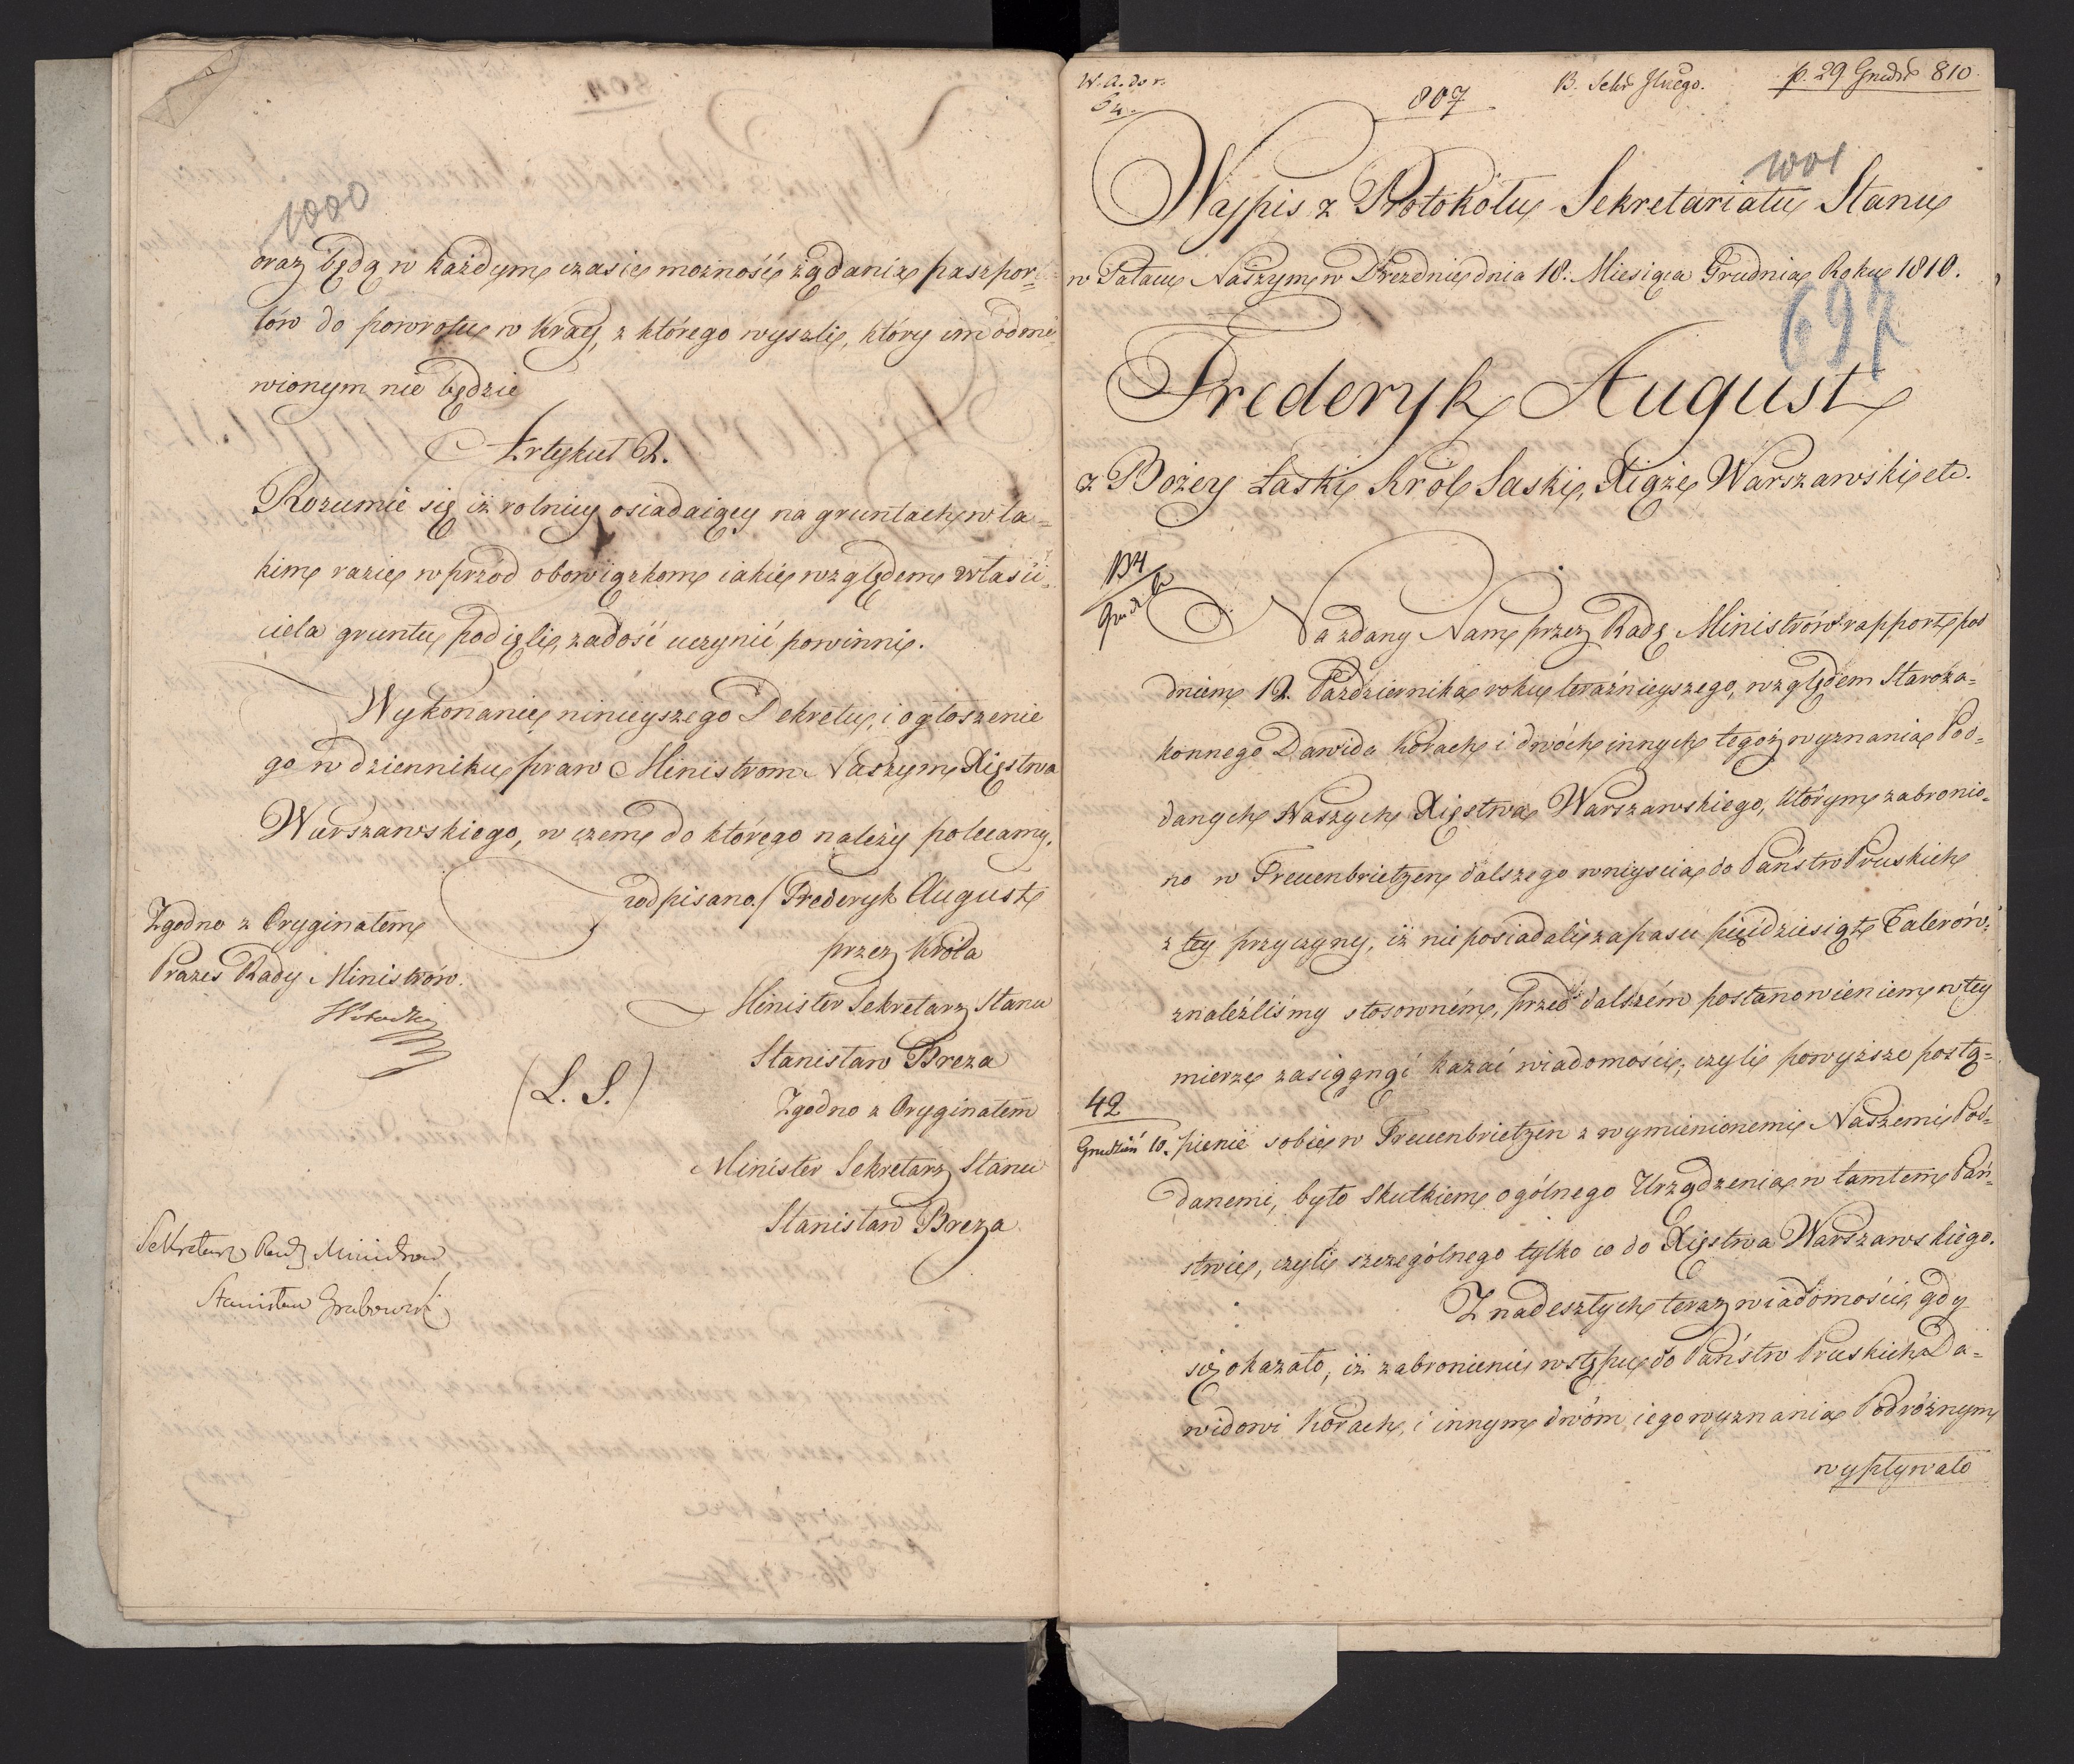 1000
oraz będą w każdym czasie możność żądania paszpor=
tów do powrotu w Kray, z którego wyszli, który im odmó=
wionym nie będzie
Artykuł 2.
Rozumie się iż rolnicy osiadaiący na gruntach, w ta=
kim razie wprzód obowiązkom iakie względem właści=
ciela gruntu podięli, zadość uczynić powinni.
Wykonanie ninieyszego Dekretu, i ogłoszenie
go w dzienniku praw Ministrom Naszym Xięstwa
Warszawskiego, w czem do którego należy polecamy.
podpisano./ Frederyk August
przez Króla
Minister Sekretarz Stanu
Stanisław Breza
(L. S.)
Zgodno z Oryginałem
Minister Sekretarz Stanu
Stanisław Breza
Zgodno z Oryginałem
Prezes Rady Ministrów.
Sekretarz Rady Ministrow
Stanisław Grabowski
807
p. 29 Grudn 810.
1001
Wypis z Protokółu Sekretariatu Stanu
w Pałacu Naszym w Dreznie dnia 18. Miesiąca Grudnia Roku 1810.
697
Frederyk August
z Bożey Łaski Król Saski, Xiąże Warszawski etc.
134
Na zdany Nam przez Radę Ministrów rapport pod
dniem 12. Października roku teraźnieyszego, względem Staroza=
konnego Dawida Korach i dwóch innych tegoż wyznania Pod=
danych Naszych Xięstwa Warszawskiego, którym zabronio=
no w Treuenbrietzen dalszego wniyscia do Państw Pruskich
z tey przyczyny, iż nie posiadali zapasu pięćdziesiąt Talerów;
znaleźliśmy stosownem, przed dalszém postanowieniem w tey
mierze zasięgnąć kazać wiadomości; czyli powyższe postą=
42
Grudzień 10.
pienie sobie w Treuenbrietzen z wymienionemi Naszemi Pod=
danemi, było skutkiem ogólnego Urządzenia w tamtem Pań=
stwie, czyli szczególnego tylko co do Xięstwa Warszawskiego.
Z nadeszłych teraz wiadomości, gdy
się okazało, iż zabronienie wstępu do Państw Pruskich Da=
widowi Korach, i innym dwóm iego wyznania Podróżnym
wypływało